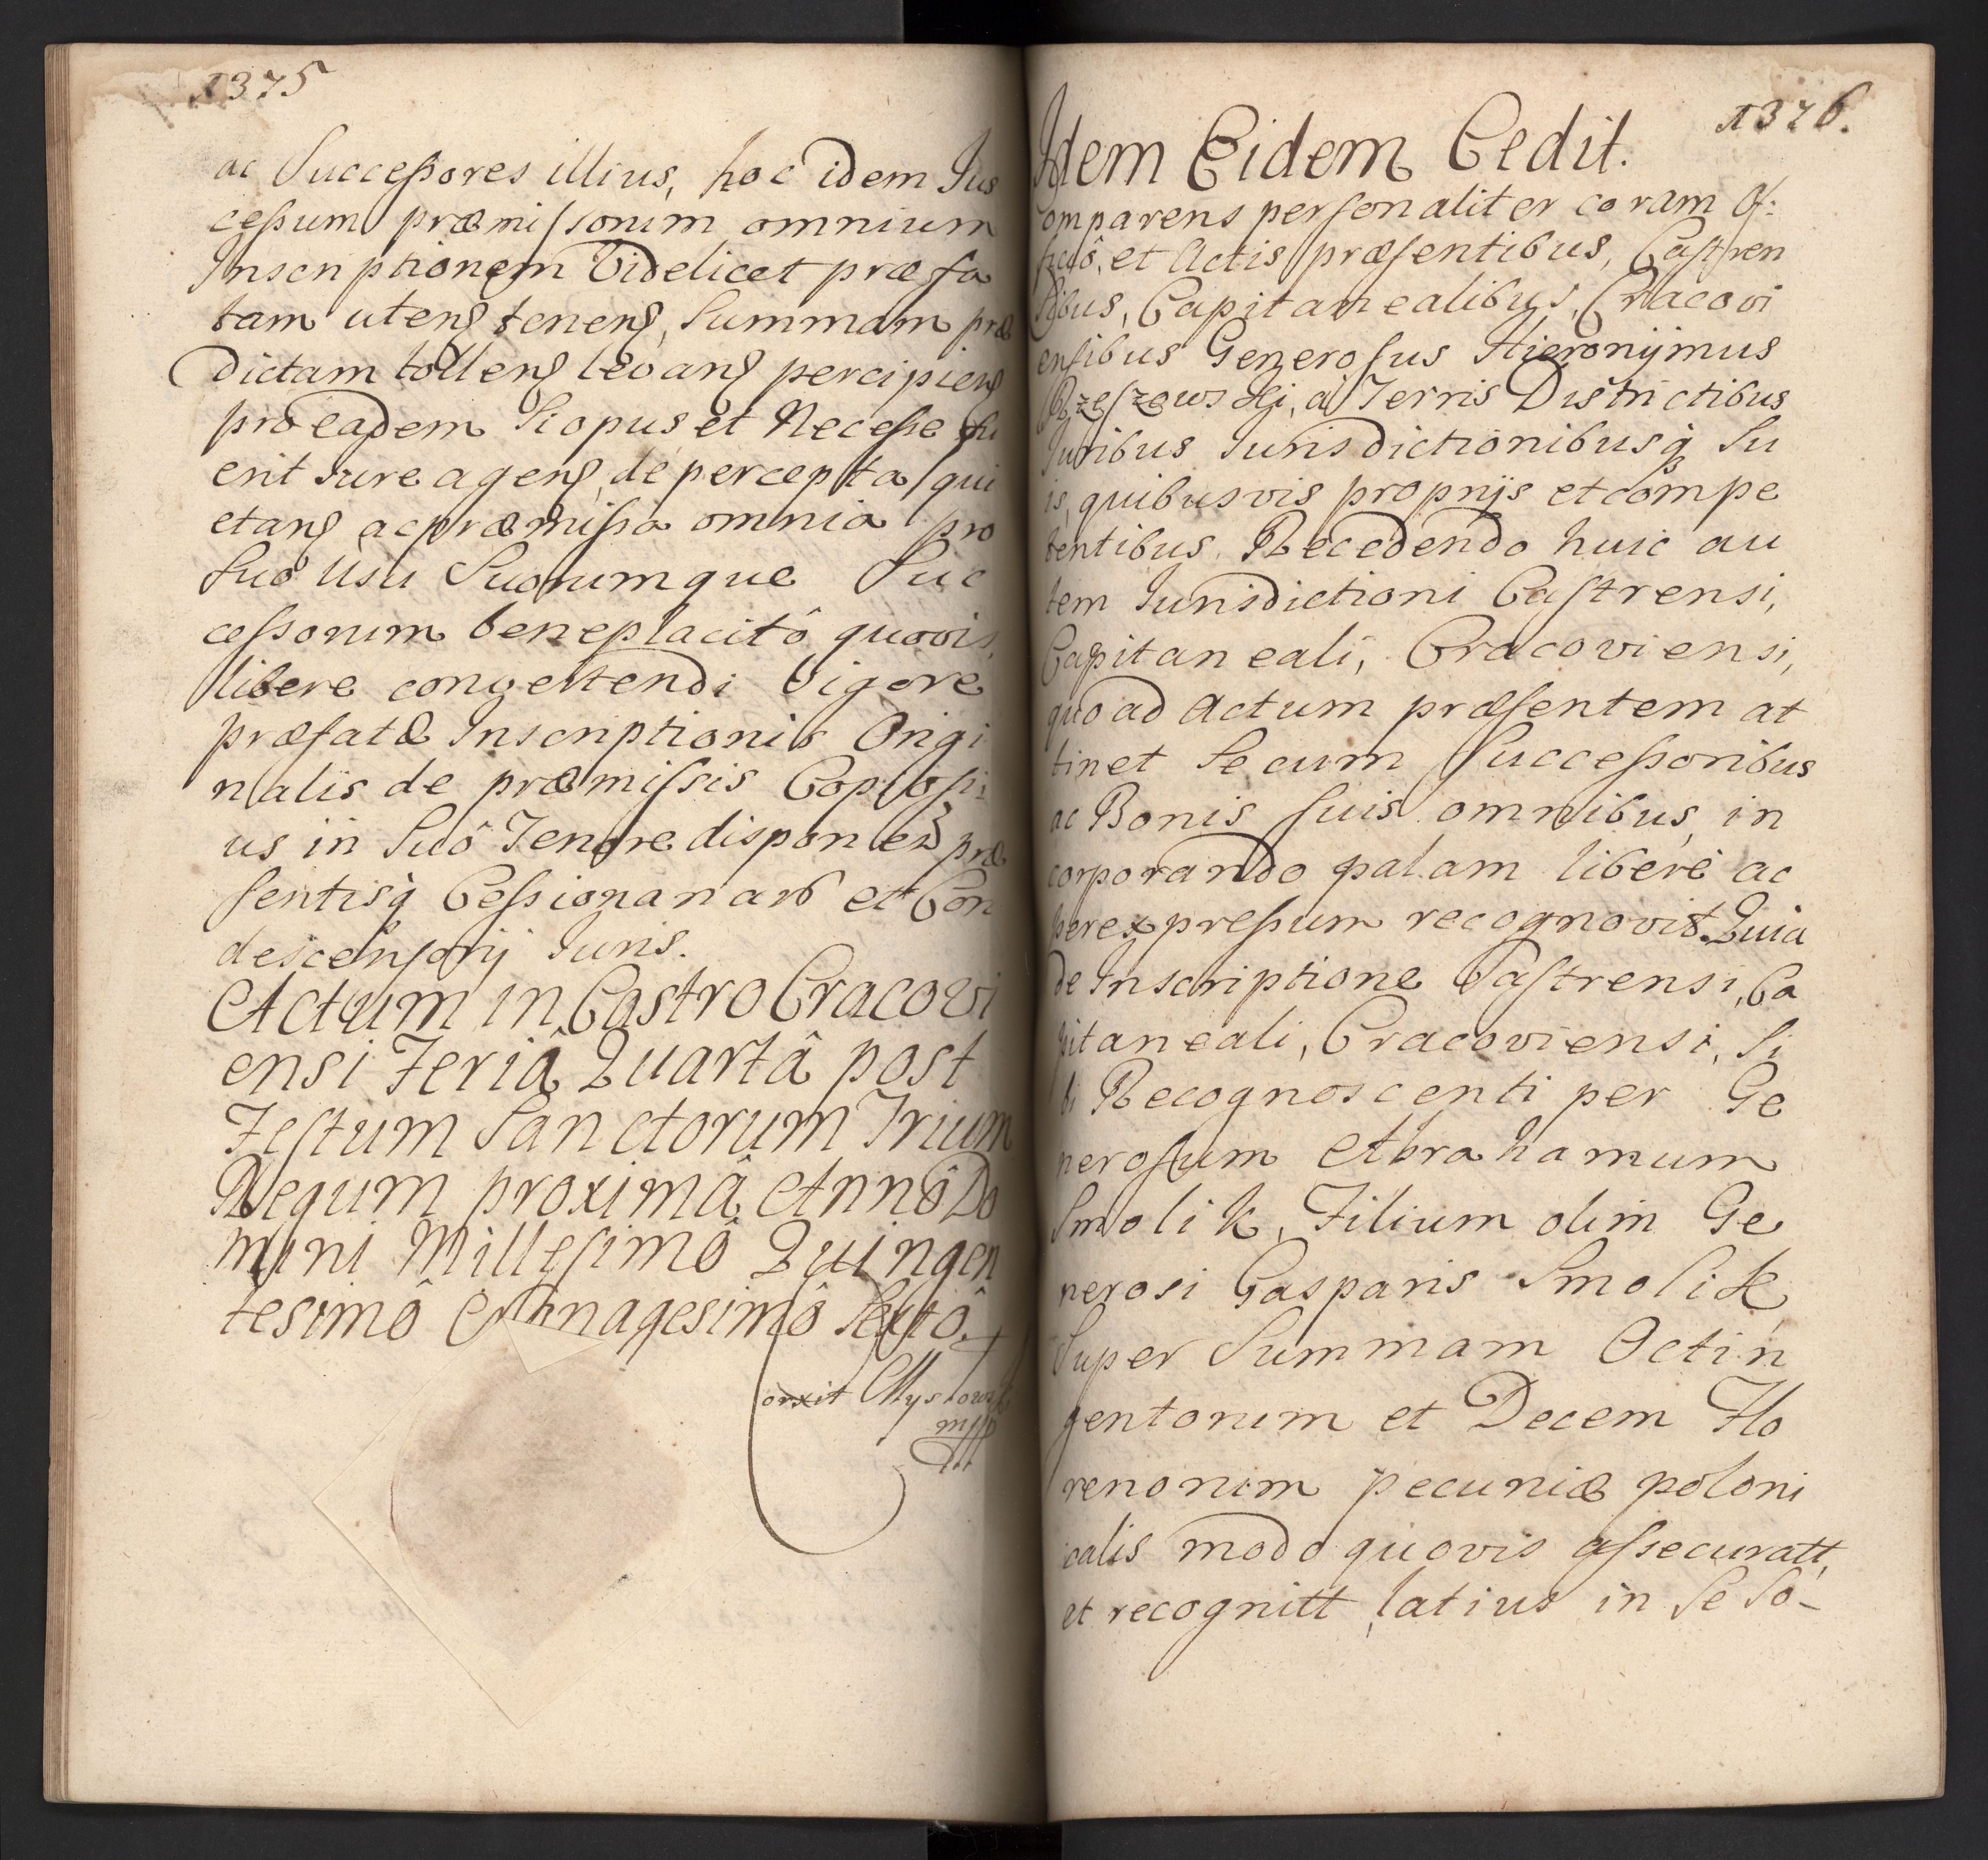 1375
ac Successores illius, hoc idem Jus
cessum præmissorum omnium
Inscriptionem Videlicet præfa
tam utens tenens, Summam præ
dictam tollens levans percipiens
pro eadem Si opus et Necesse fu
erit iure agens, de percepta qui
etans ac præmissa omnia pro
Suo Usu Suorumque Suc
cessorum beneplacitô quovis,
libere convertendi Vigore
præfatæ Inscriptionis Origi
nalis de præmissis Copiosi:
us in Suô Tenore dispon præ
sentisq Cessionari ac et Con
descensorij Juris.
Actum in Castro Cracovi
ensi Feriâ Quartâ post
Festum Sanctorum Trium
Regum proximâ Annô Do
mini Millesimô Quingen
tesimô Sextô.
mpp
1376.
Idem Eidem Cedit.
omparens personaliter coram Of:
ficiô, et Actis præsentibus, Castren
sibus, Capitanealibus, Cracovi
ensibus Generosus Hieronymus
Rzeszowski, à Terris Districtibus
Juribus Jurisdictionibusq Su
is, quibusvis proprijs et compe
tentibus Recedendo huic au
tem Jurisdictioni Castrensi,
Capitaneali, Cracoviensi,
quo ad Actum præsentem at
tinet Se cum Successoribus
ac Bonis suis omnibus, in
corporando palam liberè ac
per expressum recognovit. Quia
de Inscriptione Castrensi, Ca
pitaneali, Cracoviensi, Si
bi Recognoscenti per Ge
nerosum Abrahamum
Smolik, Filium olim Ge
nerosi Gasparis Smolik
Super Summam Octin
gentorum et Decem Flo
renorum pecuniæ poloni
calis modo quovis assecuratt,
et recognitt latius in Se So-